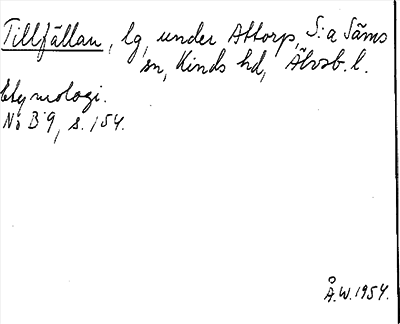 Tillfällan, lg, under Attorp, S:a Säms
sn, Kinds hd, Älvsb. l.
Etymologi.
NoB 9, s. 154.
Å.W. 1954.